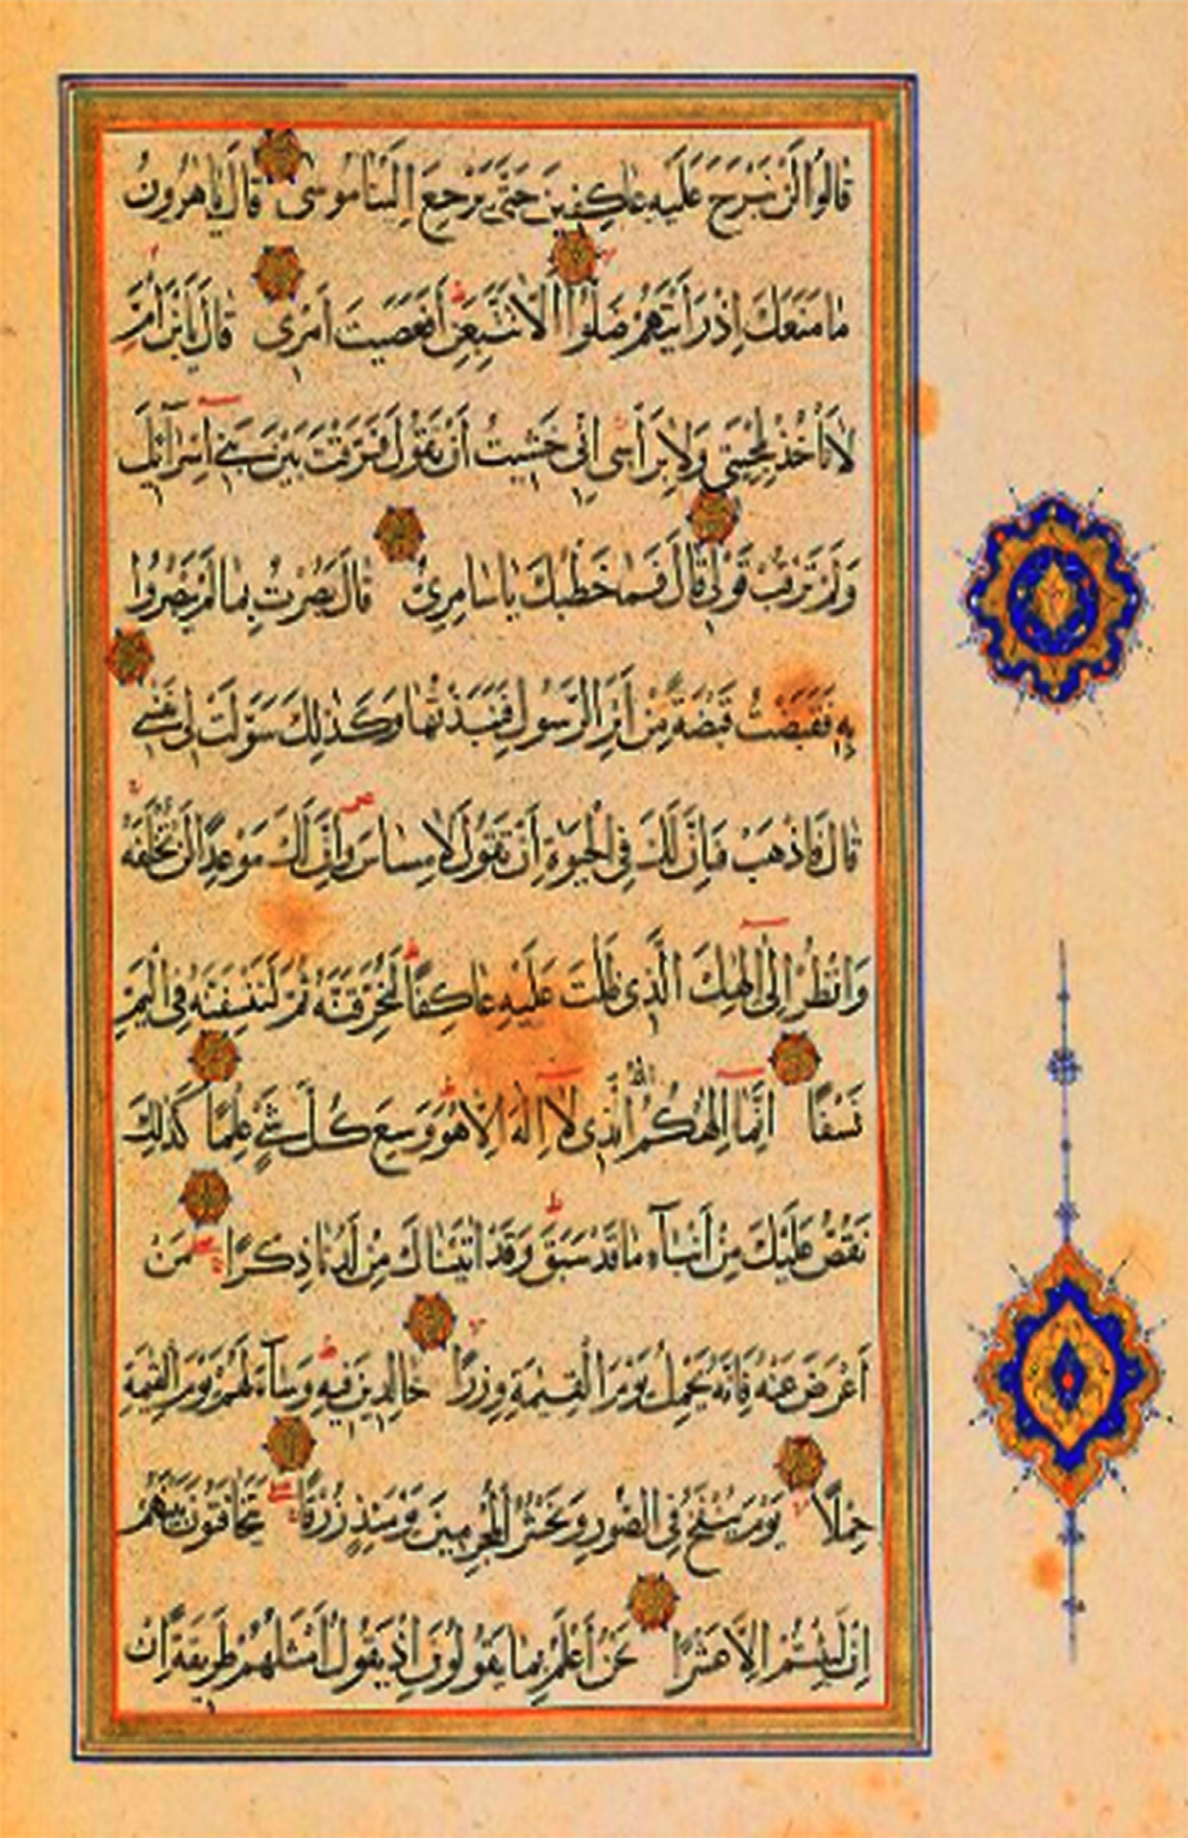 قَالُوا لَنْ نَبْرَحَ عَلَيْهِ عَاكِفِينَ حَتَّى يَرْجِعَ إِلَيْنَا مُوسَى قَالَ يَا هَرُونُ
مَا مَنَعَكَ إِذْ رَأَيْتَهُمْ ضَلُّوا أَلَّا تَتَّبِعَنِ أَفَعَصَيْتَ أَمْرِي قَالَ يَا ابْنَ أُمَّ
لَا تَأْخُذْ بِلِحْيَتِي وَلَا بِرَأْسِي إِنِّي خَشِيتُ أَنْ تَقُولَ فَرَّقْتَ بَيْنَ بَنِي إِسْرَائِلَ
وَلَمْ تَرْقُبْ قَوْلِي قَالَ فَمَا خَطْبُكَ يَا سَامِرِيُّ قَالَ بَصُرْتُ بِمَا لَمْ يَبْصُرُوا
بِهِ فَقَبَضْتُ قَبْضَةً مِنْ أَثَرِ الرَّسُولِ فَنَبَذْتُهَا وَكَذَلِكَ سَوَّلَتْ لِي نَفْسِي
قَالَ فَاذْهَبْ فَإِنَّ لَكَ فِي الْحَيَوةِ أَنْ تَقُولَ لَا مِسَاسَ وَإِنَّ لَكَ مَوْعِدًا لَنْ تُخْلَفَهُ
وَانْظُرْ إِلَى إِلَهِكَ الَّذِي ظَلْتَ عَلَيْهِ عَاكِفًا لَنُحَرِّقَنَّهُ ثُمَّ لَنَنْسِفَنَّهُ فِي الْيَمِّ
نَسْفًا إِنَّمَا إِلَهُكُمُ اللَّهُ الَّذِي لَا إِلَهَ إِلَّا هُوَ وَسِعَ كُلَّ شَيْءٍ عِلْمًا كَذَلِكَ
نَقُصُّ عَلَيْكَ مِنْ أَنْبَاءِ مَا قَدْ سَبَقَ وَقَدْ آتَيْنَاكَ مِنْ لَدُنَّا ذِكْرًا مَنْ
أَعْرَضَ عَنْهُ فَإِنَّهُ يَحْمِلُ يَوْمَ الْقِيمَةِ وِزْرًا خَالِدِينَ فِيهِ وَسَاءَ لَهُمْ يَوْمَ الْقِيمَةِ
حِمْلًا يَوْمَ يُنْفَخُ فِي الصُّورِ وَنَحْشُرُ الْمُجْرِمِينَ يَوْمَئِذٍ زُرْقًا يَتَخَافَتُونَ بَيْنَهُمْ
إِنْ لَبِثْتُمْ إِلَّا عَشْرًا نَحْنُ أَعْلَمُ بِمَا يَقُولُونَ إِذْ يَقُولُ أَمْثَلُهُمْ طَرِيقَةً إِنْ